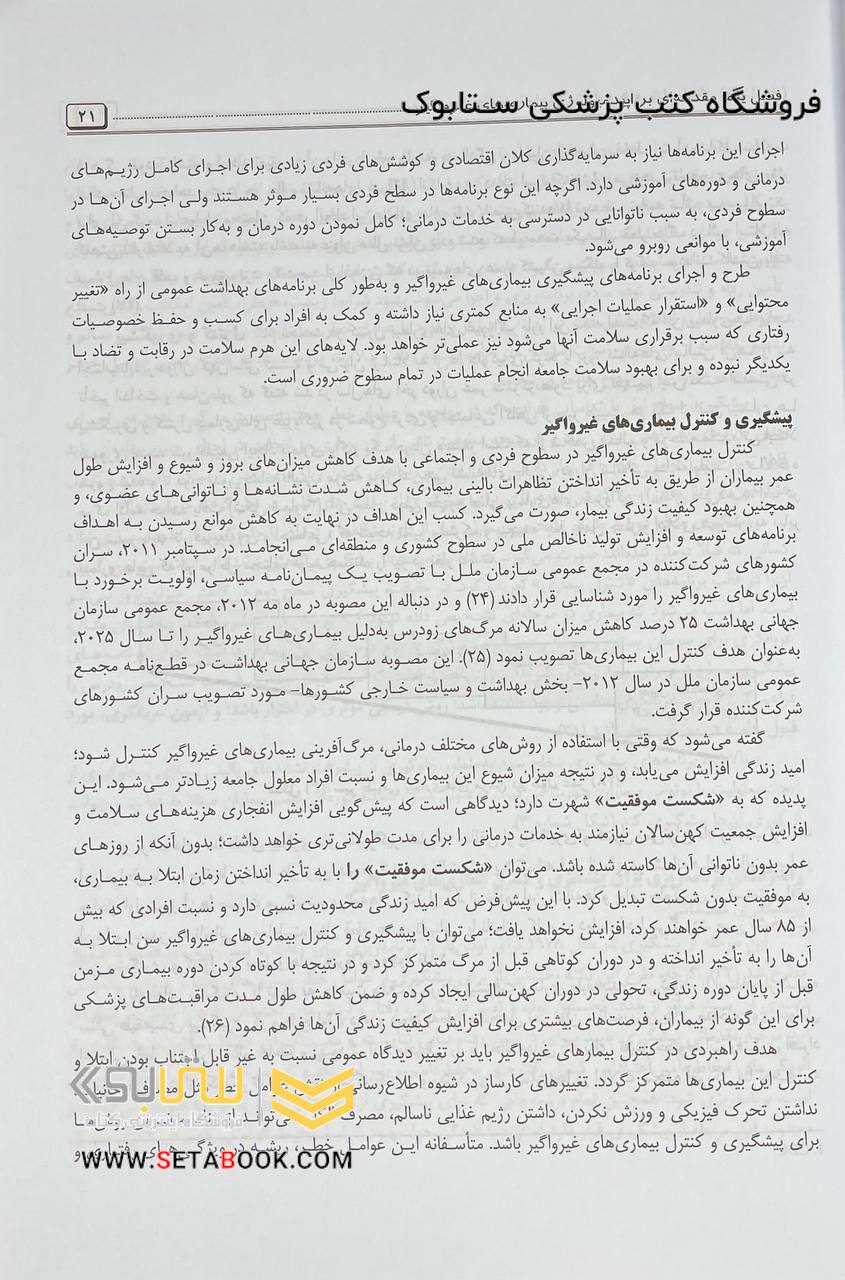 فروشگاه کتب پزشکی ستابوک
۲۱
اجرای این برنامه‌ها نیاز به سرمایه‌گذاری کلان اقتصادی و کوشش‌های فردی زیادی برای اجرای کامل رژیم‌های
درمانی و دوره‌های آموزشی دارد. اگرچه این نوع برنامه‌ها در سطح فردی بسیار موثر هستند ولی اجرای آن‌ها در
سطوح فردی، به سبب ناتوانایی در دسترسی به خدمات درمانی؛ کامل نمودن دوره درمان و به‌کار بستن توصیه‌های
آموزشی، با موانعی روبرو می‌شود.
طرح و اجرای برنامه‌های پیشگیری بیماری‌های غیرواگیر و به‌طور کلی برنامه‌های بهداشت عمومی از راه «تغییر
محتوایی» و «استقرار عملیات اجرایی» به منابع کمتری نیاز داشته و کمک به افراد برای کسب و حفظ خصوصیات
رفتاری که سبب برقراری سلامت آنها می‌شود نیز عملی‌تر خواهد بود. لایه‌های این هرم سلامت در رقابت و تضاد با
یکدیگر نبوده و برای بهبود سلامت جامعه انجام عملیات در تمام سطوح ضروری است.
پیشگیری و کنترل بیماری‌های غیرواگیر
کنترل بیماری‌های غیرواگیر در سطوح فردی و اجتماعی با هدف کاهش میزان‌های بروز و شیوع و افزایش طول
عمر بیماران از طریق به تأخیر انداختن تظاهرات بالینی بیماری، کاهش شدت نشانه‌ها و ناتوانی‌های عضوی، و
همچنین بهبود کیفیت زندگی بیمار، صورت می‌گیرد. کسب این اهداف در نهایت به کاهش موانع رسیدن به اهداف
برنامه‌های توسعه و افزایش تولید ناخالص ملی در سطوح کشوری و منطقه‌ای می‌انجامد. در سپتامبر ۲۰۱۱، سران
کشورهای شرکت‌کننده در مجمع عمومی سازمان ملل با تصویب یک پیمان‌نامه سیاسی، اولویت برخورد با
بیماری‌های غیرواگیر را مورد شناسایی قرار دادند (۲۴) و در دنباله این مصوبه در ماه مه ۲۰۱۲، مجمع عمومی سازمان
جهانی بهداشت ۲۵ درصد کاهش میزان سالانه مرگ‌های زودرس به‌دلیل بیماری‌های غیرواگیر را تا سال ۲۰۲۵،
به‌عنوان هدف کنترل این بیماری‌ها تصویب نمود (۲۵). این مصوبه سازمان جهانی بهداشت در قطع‌نامه مجمع
عمومی سازمان ملل در سال ۲۰۱۲- بخش بهداشت و سیاست خارجی کشورها- مورد تصویب سران کشورهای
شرکت‌کننده قرار گرفت.
گفته می‌شود که وقتی با استفاده از روش‌های مختلف درمانی، مرگ‌آفرینی بیماری‌های غیرواگیر کنترل شود؛
امید زندگی افزایش می‌یابد، و در نتیجه میزان شیوع این بیماری‌ها و نسبت افراد معلول جامعه زیادتر می‌شود. این
پدیده که به «شکست موفقیت» شهرت دارد؛ دیدگاهی است که پیش‌گویی افزایش انفجاری هزینه‌های سلامت و
افزایش جمعیت کهن‌سالان نیازمند به خدمات درمانی را برای مدت طولانی‌تری خواهد داشت؛ بدون آنکه از روزهای
عمر بدون ناتوانی آن‌ها کاسته شده باشد. می‌توان «شکست موفقیت» را با به تأخیر انداختن زمان ابتلا به بیماری،
به موفقیت بدون شکست تبدیل کرد. با این پیش‌فرض که امید زندگی محدودیت نسبی دارد و نسبت افرادی که بیش
از ۸۵ سال عمر خواهند کرد، افزایش نخواهد یافت؛ می‌توان با پیشگیری و کنترل بیماری‌های غیرواگیر سن ابتلا به
آن‌ها را به تأخیر انداخته و در دوران کوتاهی قبل از مرگ متمرکز کرد و در نتیجه با کوتاه کردن دوره بیماری مزمن
قبل از پایان دوره زندگی، تحولی در دوران کهن‌سالی ایجاد کرده و ضمن کاهش طول مدت مراقبت‌های پزشکی
برای این گونه از بیماران، فرصت‌های بیشتری برای افزایش کیفیت زندگی آن‌ها فراهم نمود (۲۶).
هدف راهبردی در کنترل بیمارهای غیرواگیر باید بر تغییر دیدگاه عمومی نسبت به غیر قابل اجتناب بودن ابتلا و
کنترل این بیماری‌ها متمرکز گردد. تغییرهای کارساز در شیوه اطلاع‌رسانی
نداشتن تحرک فیزیکی و ورزش نکردن، داشتن رژیم غذایی ناسالم، مصرف
برای پیشگیری و کنترل بیماری‌های غیرواگیر باشد. متأسفانه این عوامل خطر، ریشه در ویژگی‌های رفتاری و
ستابوک
فروشگاه اینترنتی کتاب
WWW.SETABOOK.COM